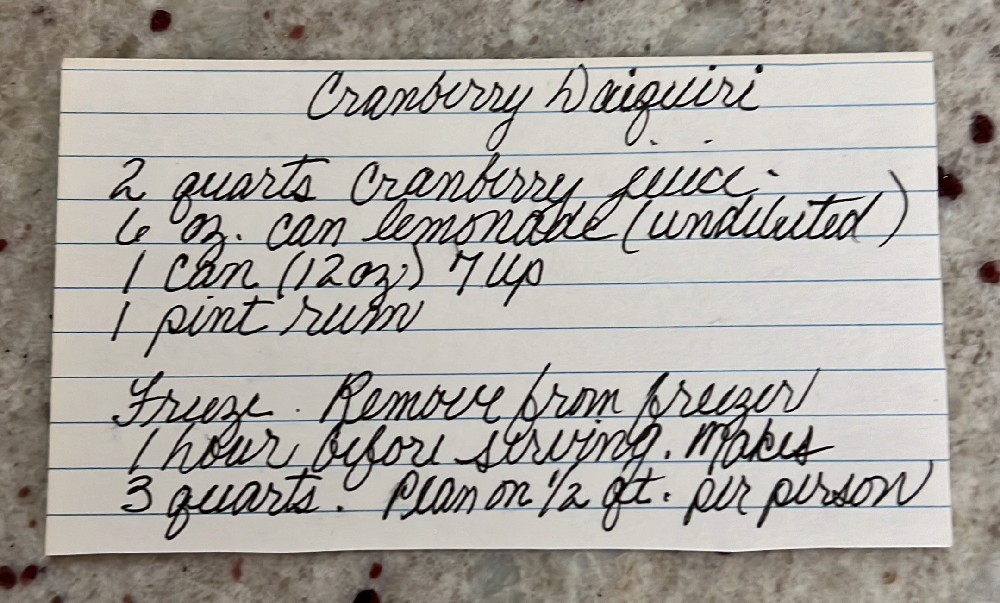 Cranberry Daiquiri
2 quarts Cranberry juice.
6 oz. can lemonade (undiluted)
1 can (12 oz) 7 up
1 pint rum
Freeze. Remove from freezer
1 hour before serving. Makes
3 quarts. Plan on 1/2 qt. per person